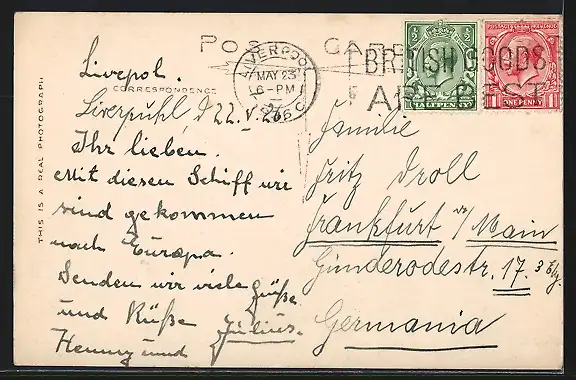 POST CARD
CORRESPONDENCE
THIS IS A REAL PHOTOGRAPH
LIVERPOOL
MAY 23
6-PM
1926
BRITISH GOODS
ARE BEST
HALFPENNY
ONE PENNY
Liverpol.
Liverpuhl d 22.V.26
Ihr lieben.
Mit diesen Schiff wir
sind gekommen
nach Europa.
Senden wir viele Grüße
und Küße Julius.
Henny und
Familie
Fritz Droll
Frankfurt a/Main
Günderodestr. 17. 3
Germania